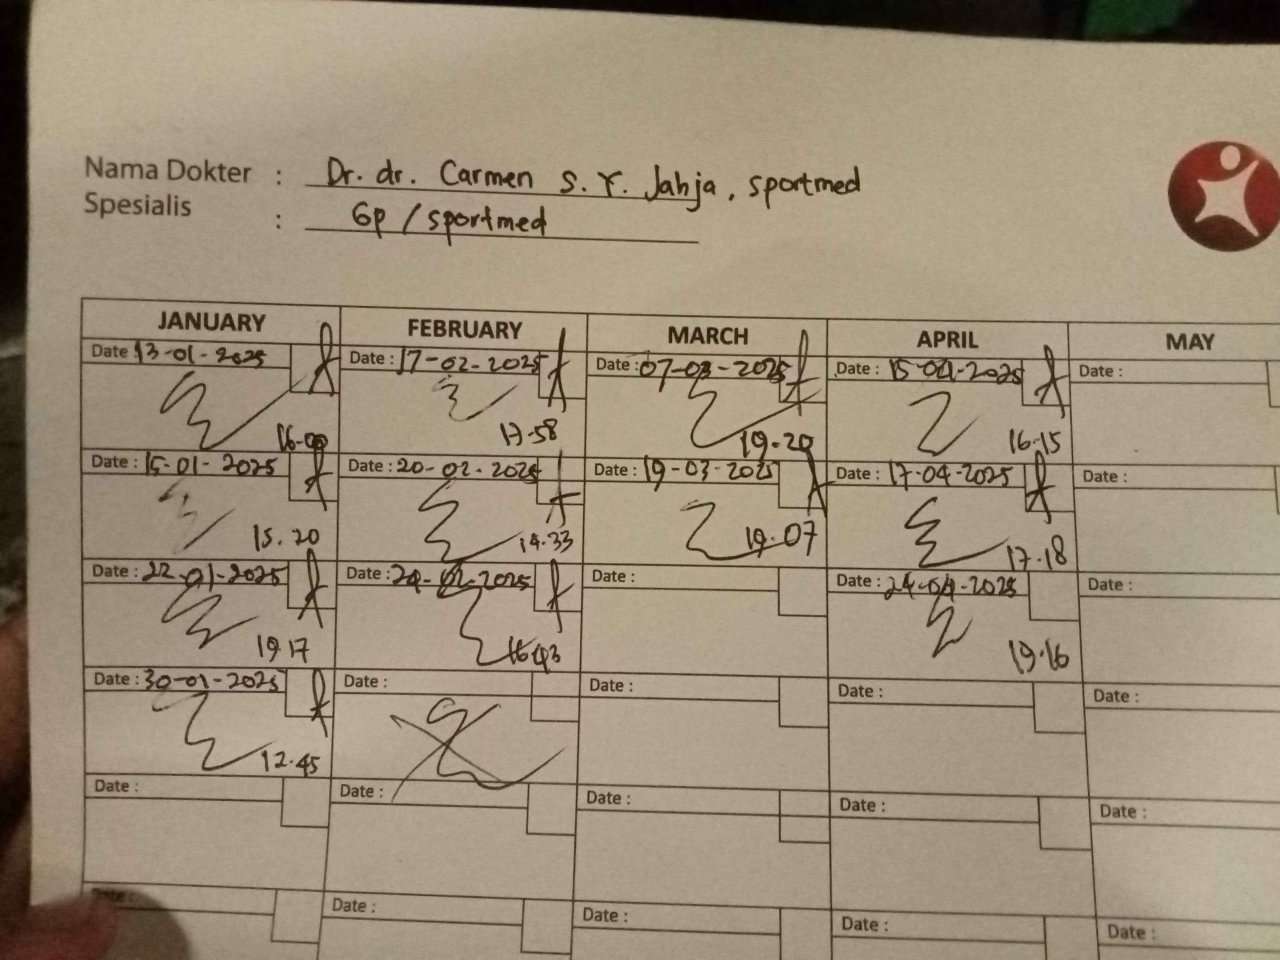 Nama Dokter : Dr. dr. Carmen S. Y. Jahja, sportmed
Spesialis : Gp / sportmed
JANUARY FEBRUARY MARCH APRIL MAY
Date : 13-01-2025 Date : 17-02-2025 Date : 07-03-2025 Date : 15-04-2025 Date :
16.00 17.58 19.20 16.15
Date : 15-01-2025 Date : 20-02-2025 Date : 19-03-2025 Date : 17-04-2025 Date :
15.20 19.33 19.07 17.18
Date : 22-01-2025 Date : 24-02-2025 Date : Date : 24-04-2025 Date :
19 17 16.43 19.16
Date : 30-01-2025 Date : Date : Date : Date :
12.45
Date : Date : Date : Date : Date :
Date : Date : Date : Date : Date :